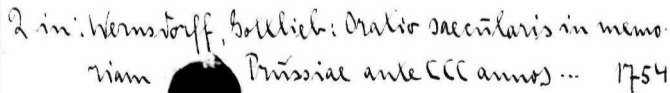 2 in: Wernsdorff, Gottlieb: Oratio saecularis in memo-
riam Prussiae ante CCC annos ... 1754